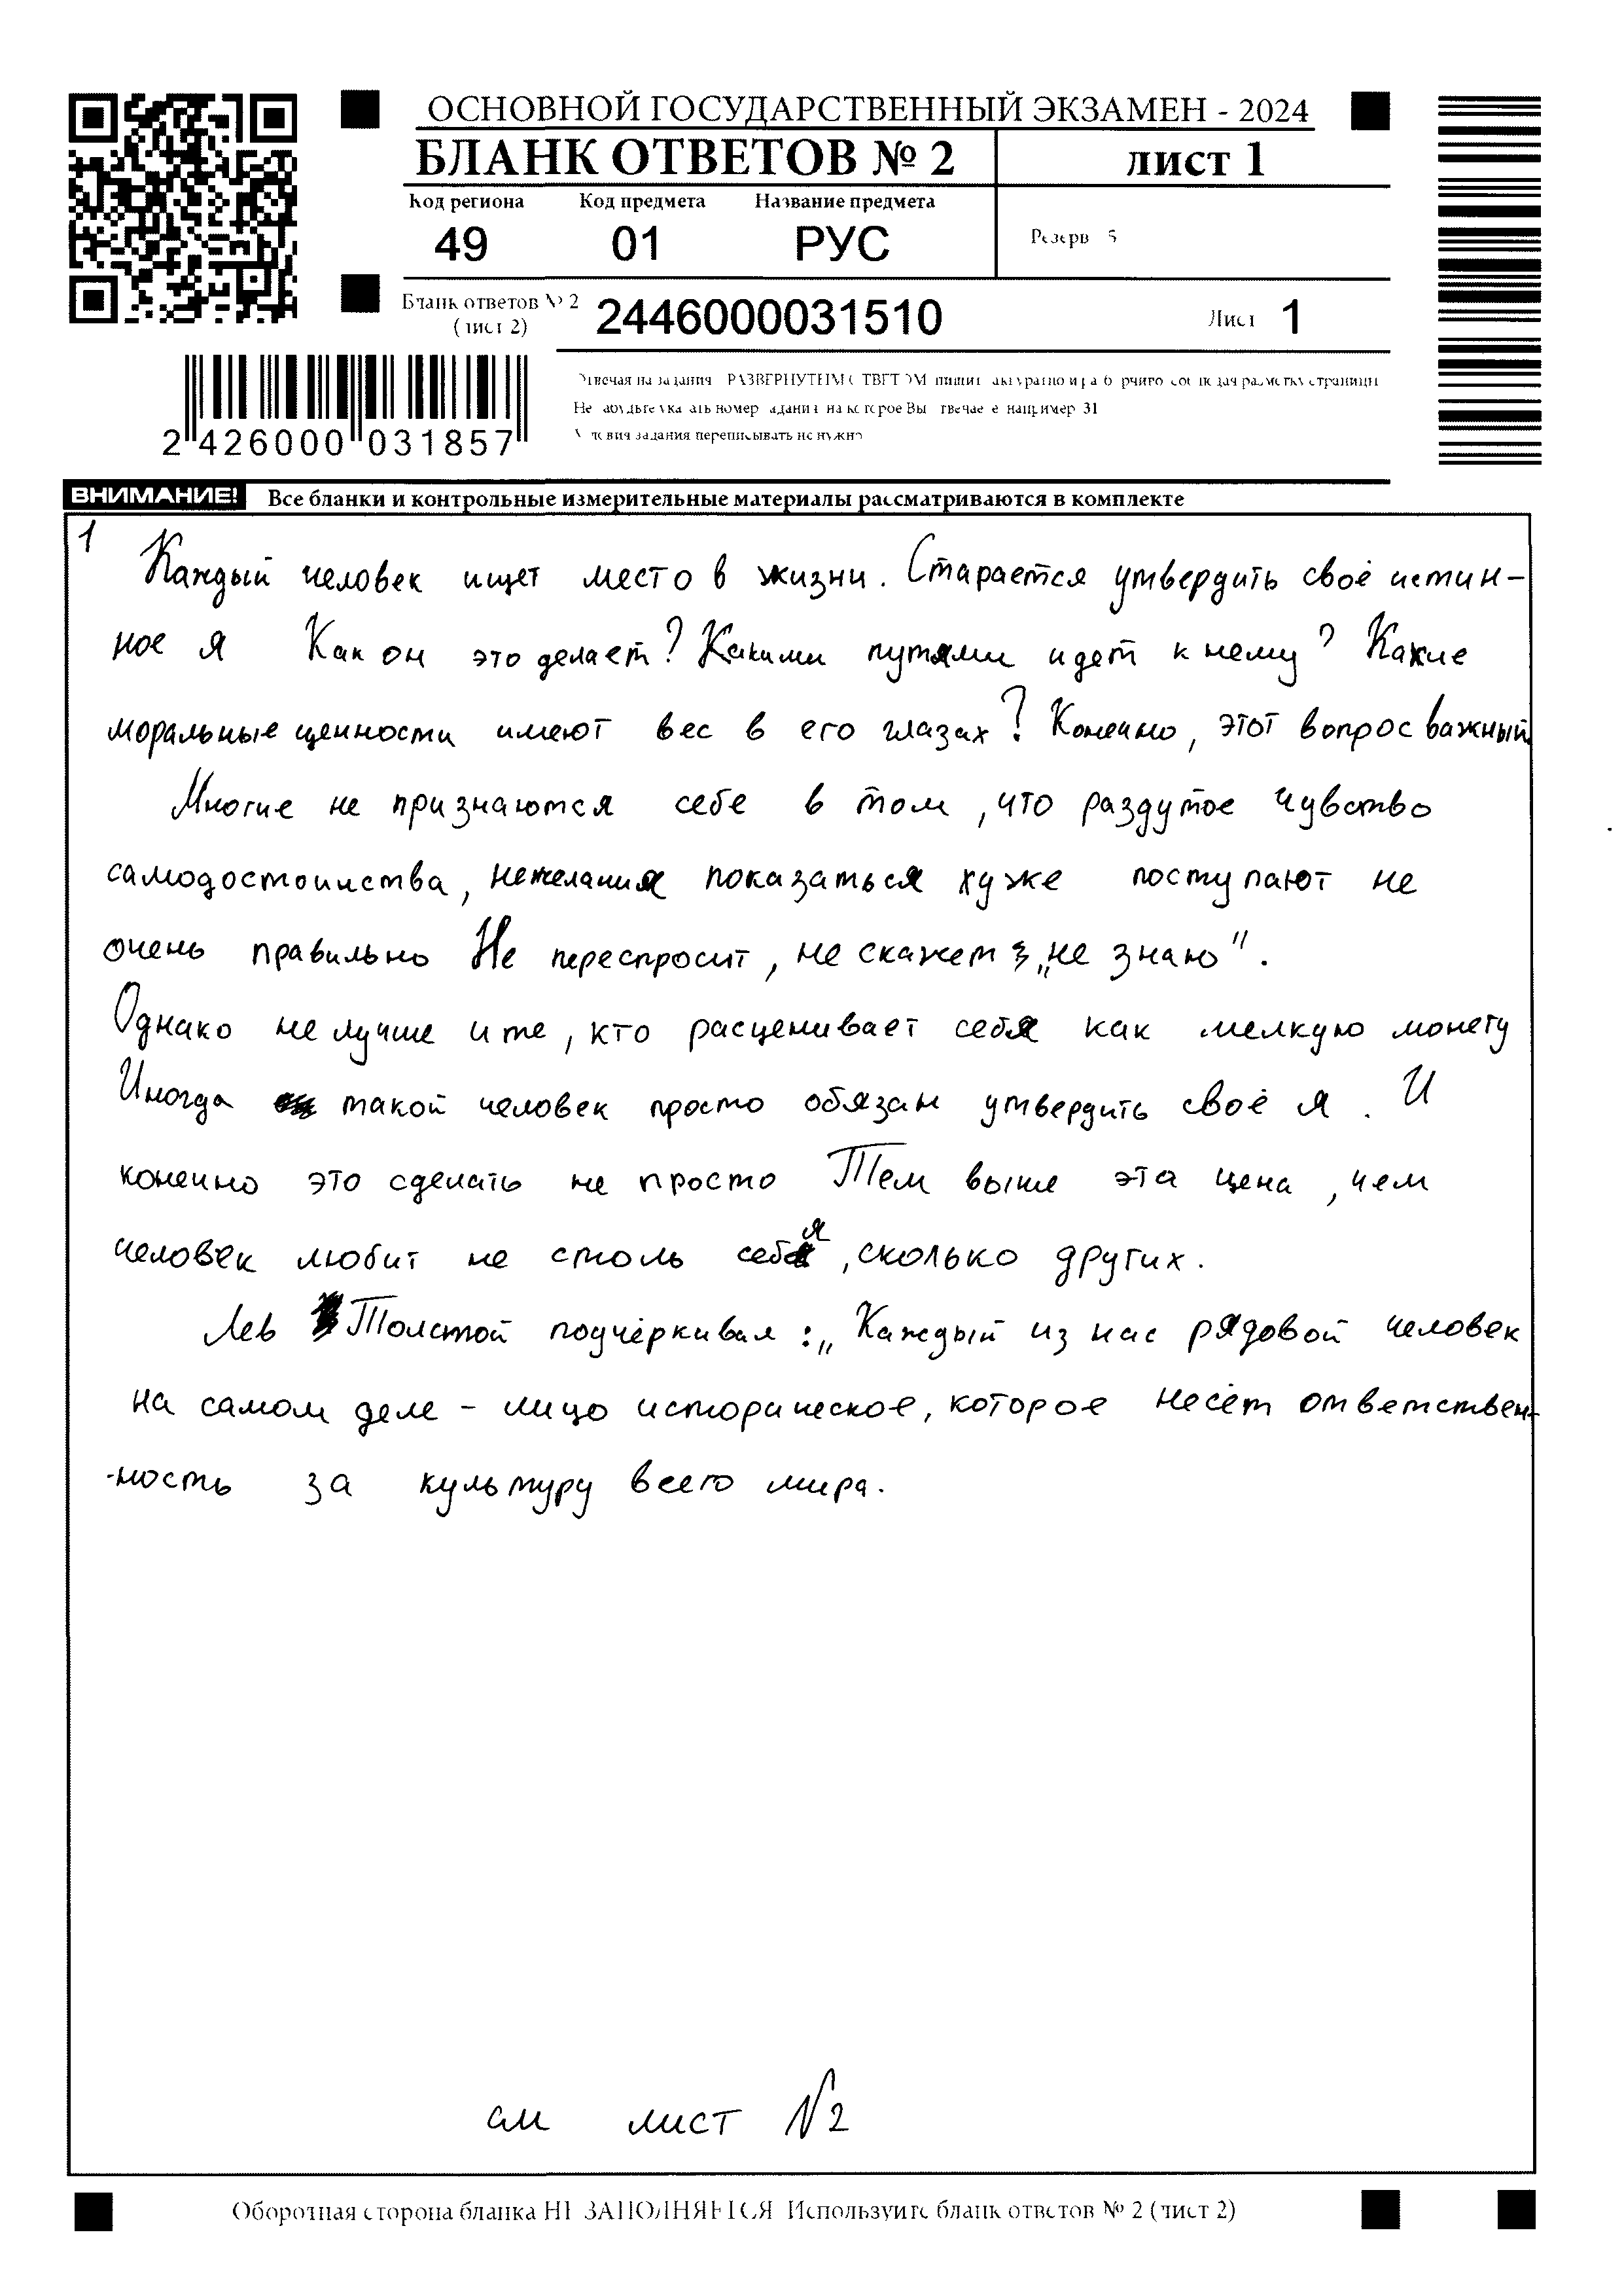 ОСНОВНОЙ ГОСУДАРСТВЕННЫЙ ЭКЗАМЕН - 2024
БЛАНК ОТВЕТОВ № 2
лист 1
Код региона Код предмета Название предмета
49 01 РУС
Резерв 5
Бланк ответов № 2
(лист 2)
2446000031510
Лист 1
2 426000 031857
ВНИМАНИЕ! Все бланки и контрольные измерительные материалы рассматриваются в комплекте
1
Каждый человек ищет место в жизни. Старается утвердить своё истин-
ное я Как он это делает? Какими путями идет к нему? Какие
моральные ценности имеют вес в его глазах? Конечно, этот вопрос важный
Многие не признаются себе в том, что раздутое чувство
самодостоинства, нежелания показаться хуже поступают не
очень правильно Не переспросит, не скажет „не знаю".
Однако не лучше и те, кто расценивает себя как мелкую монету
Иногда такой человек просто обязан утвердить своё я. И
конечно это сделать не просто Тем выше эта цена, чем
человек любит не столь себя, сколько других.
Лев Толстой подчёркивал: „Каждый из нас рядовой человек
на самом деле - лицо историческое, которое несёт ответствен-
-ность за культуру всего мира.
см лист №2
Оборотная сторона бланка НЕ ЗАПОЛНЯЕТСЯ Используйте бланк ответов № 2 (лист 2)